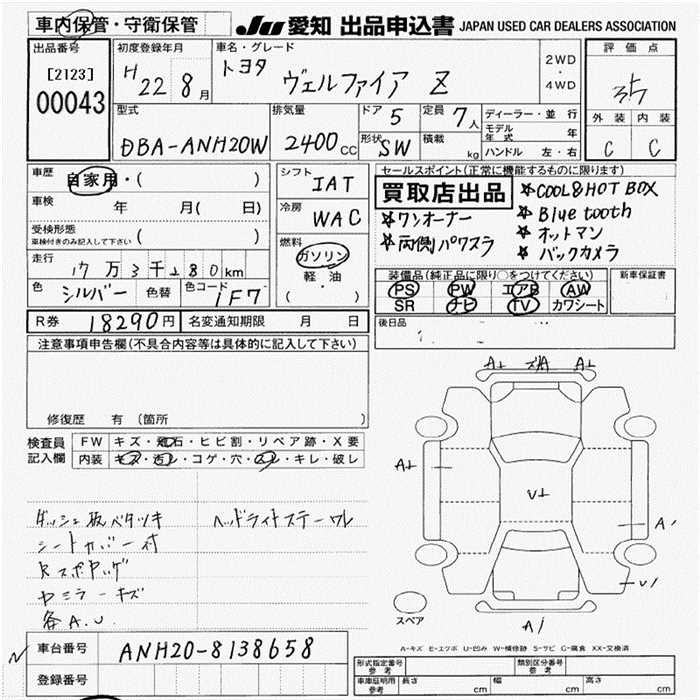 車内保管・守衛保管
JU 愛知 出品申込書 JAPAN USED CAR DEALERS ASSOCIATION
出品番号
[2123]
00043
初度登録年月
H 22 8月
車名・グレード
トヨタ ヴェルファイア Z
2WD
・
4WD
評価点
3.5
外装 内装
C C
型式
DBA-ANH20W
排気量
2400cc
ドア 5
形状 SW
定員 7人
積載 kg
ディーラー・並行
モデル年式 年
ハンドル 左・右
車歴
自家用・( )
車検 年 月( 日)
受検形態
車検付きのみ記入して下さい ( )
走行
17万3千280km
色 シルバー 色替 色コード 1F7
シフト IAT
冷房 WAC
燃料
ガソリン
軽・油
( )
セールスポイント(正常に機能するものに限ります)
買取店出品
☆ワンオーナー
☆両側パワスラ
☆COOL&HOT BOX
☆Bluetooth
☆オットマン
☆バックカメラ
装備品(純正品に限り○をつけてください)
PS PW エアB AW
SR ナビ TV カワシート
新車保証書
後日品
R券 18290円 名変通知期限 月 日
注意事項申告欄(不具合内容等は具体的に記入して下さい)
修復歴 有 (箇所 )
検査員記入欄
FW キズ・飛石・ヒビ割・リペア跡・X要
内装 キズ・汚レ・コゲ・穴・スレ・キレ・破レ
ダッシュ板ベタツキ
ヘッドライトステーワレ
シートカバー付
ヤミラーキズ
各A.U.
A⊥ ズA A⊥
A⊥
U⊥
A'
U'
スペア
A-キズ E-エクボ U-凹み W-補修跡 S-サビ C-腐食 XX-交換済
車台番号 ANH20-8138658
登録番号
形式指定番号 参考
類別区分番号 参考
車庫証明用 参考 長さ cm 幅 cm 高さ cm